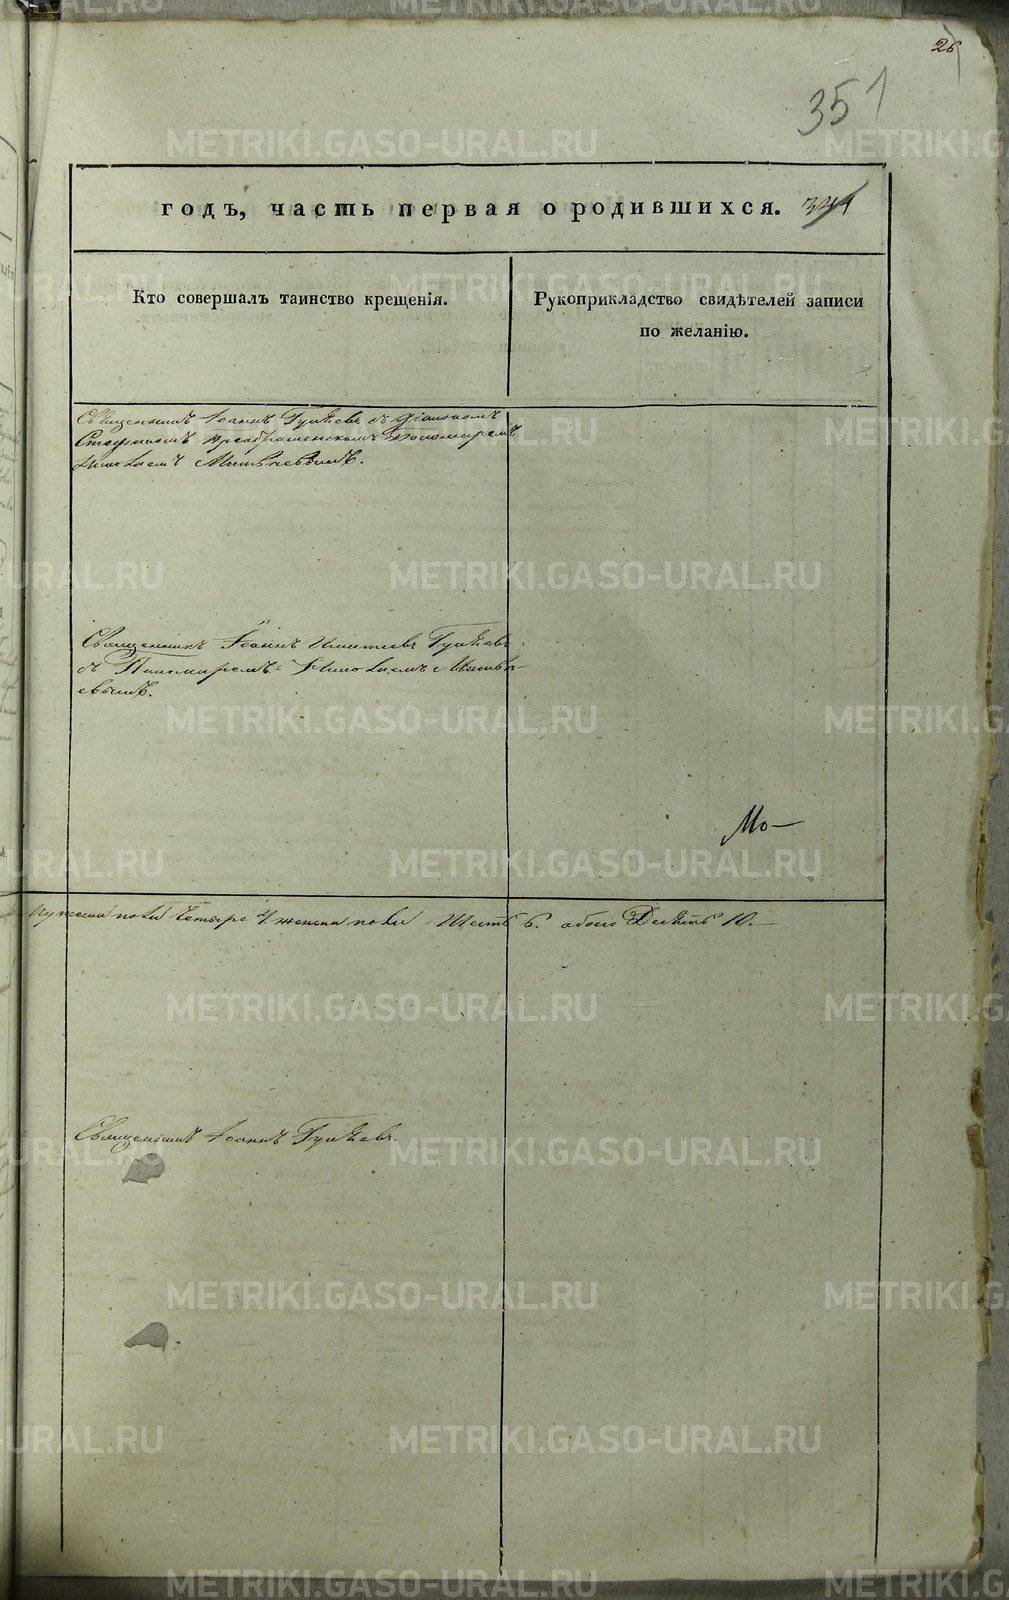 26
351
годъ, часть первая о родившихся. 344
Кто совершалъ таинство крещенія.
Рукоприкладство свидѣтелей записи
по желанію.
Священникъ Іоаннъ Гуляевъ съ Діакономъ
Преображенскимъ Пономаремъ
Николаемъ
Священникъ Іоаннъ Гуляевъ
съ Пономаремъ Николаемъ
Мо—
мужеска пола Четыре 4 женска пола Шесть 6. обоего Десять 10.—
Священникъ Іоаннъ Гуляевъ.
METRIKI.GASO-URAL.RU